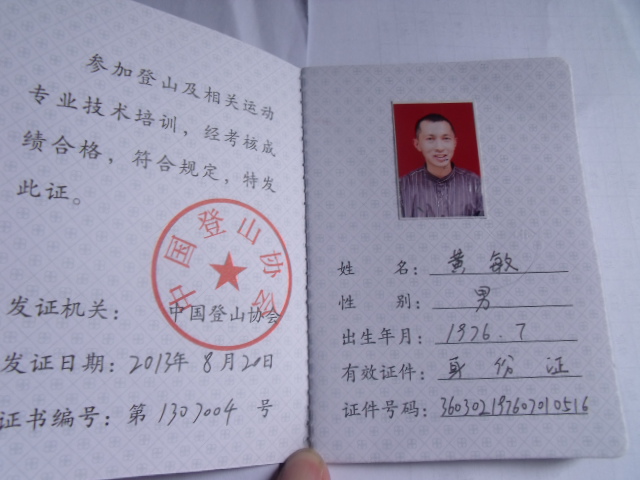 参加登山及相关运动
专业技术培训，经考核成
绩合格，符合规定，特发
此证。
中国登山协会
发证机关：中国登山协会
发证日期：2013年8月20日
证书编号：第1307004号
姓 名：黄敏
性 别：男
出生年月：1976.7
有效证件：身份证
证件号码：360302197607010516